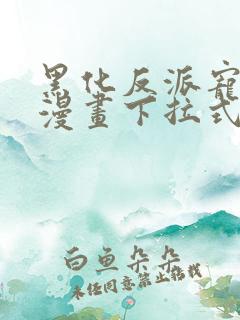 黑化反派寵
漫畫下拉式
白魚朵朵
未經同意禁止搭載